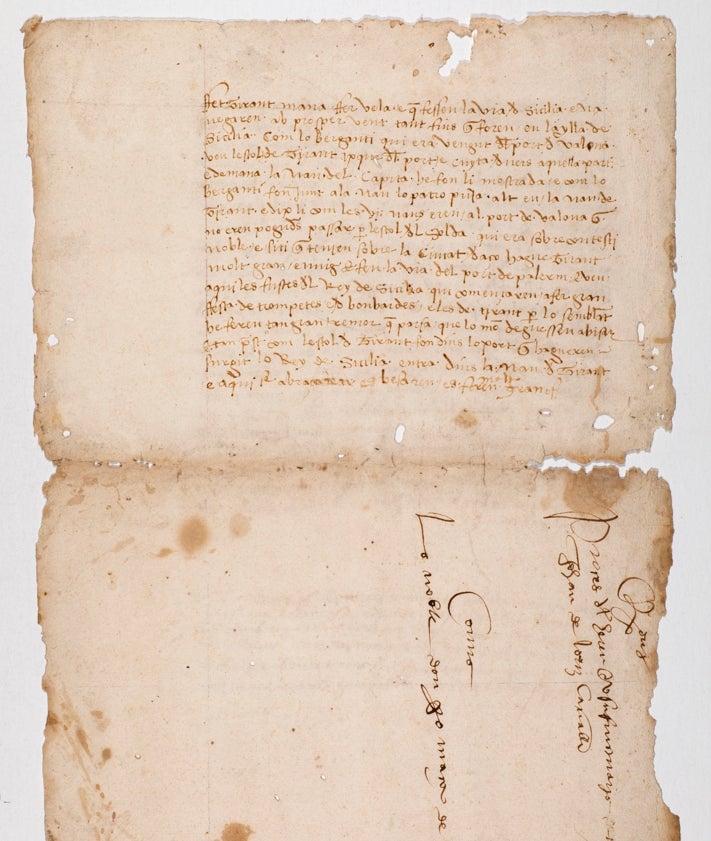 fet Tirant mana fer vela e q̃ fessen la via d̃ Sicilia e na
vegaren ab prosper vent tant fins q̃ foren en la ylla de
Sicilia Com lo berganti qui era vengut del port d̃ Valona
veu lestol de Tirant ixque del port e cuyta d̃vers aquella part
e demana la nau del Capita he fon li mostrada e com lo
berganti fon junt ala nau lo patro puja alt en la nau de
Tirant e dix li com les naus eren al port de valona q̃
no eren poguds passar p̱ lestol dl Solda qui era sobre contesti
noble e siti q̃ tenien sobre la Ciutat daço hague Tirant
molt gran enuig e feu la via del port de palerm e veu
aqui les fustes dl Rey de Sicilia qui comensaren a fer gran
festa de trompetes e d̃ bonbardes e les de tirant p̱ lo semblat
he feren tan gran tremor q̃ paria que lo mõ degues sen abisar
e tan pst com lestol d̃ Tirant fon dins lo port q̃ hagueren
surgit lo Rey de Sicilia entra dins la nau d̃ Tirant
e aqui se abraçaren es besaren es feren molt gran
Proces dl
Johan de Cavaller
Contra
Lo noble don de